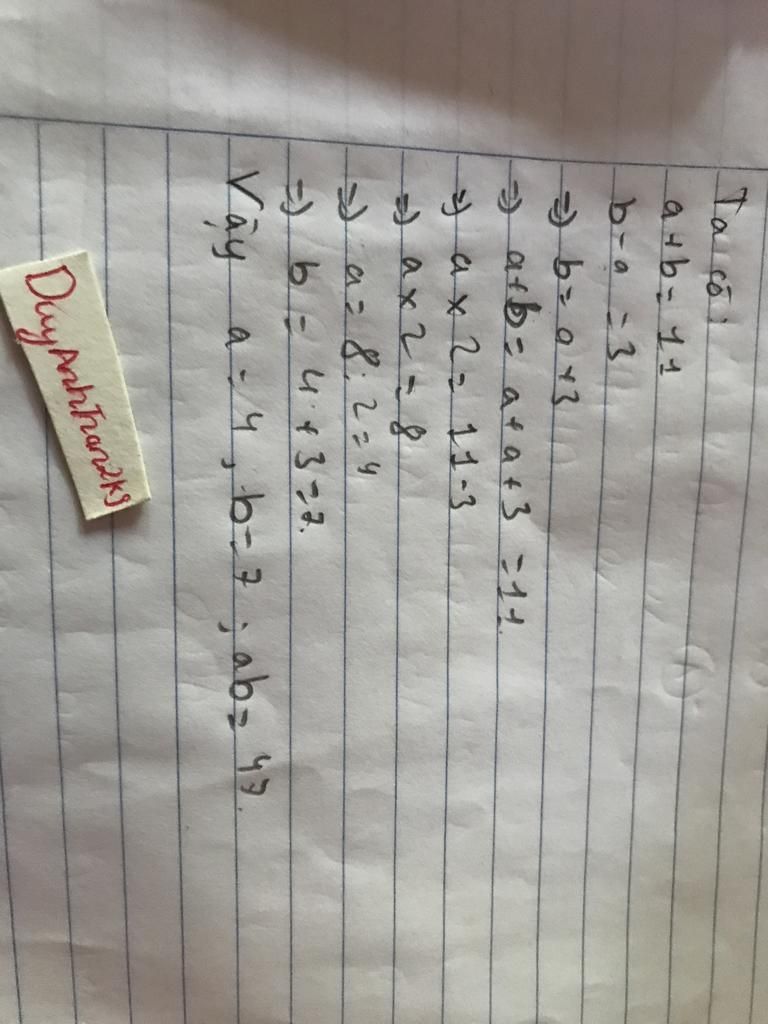 Ta có:
a+b=11
b-a =3
=> b= a+3
=> a+b= a+a+3 =11.
=> a x 2= 11-3
=> a x 2 = 8
=> a= 8:2=4
=> b = 4+3=7.
Vậy a=4, b=7; ab= 47.
DuyAnhTran2k9